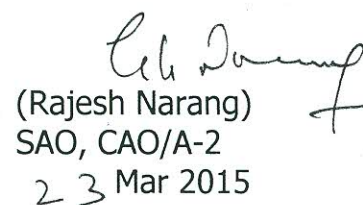 (Rajesh Narang)
SAO, CAO/A-2
23 Mar 2015